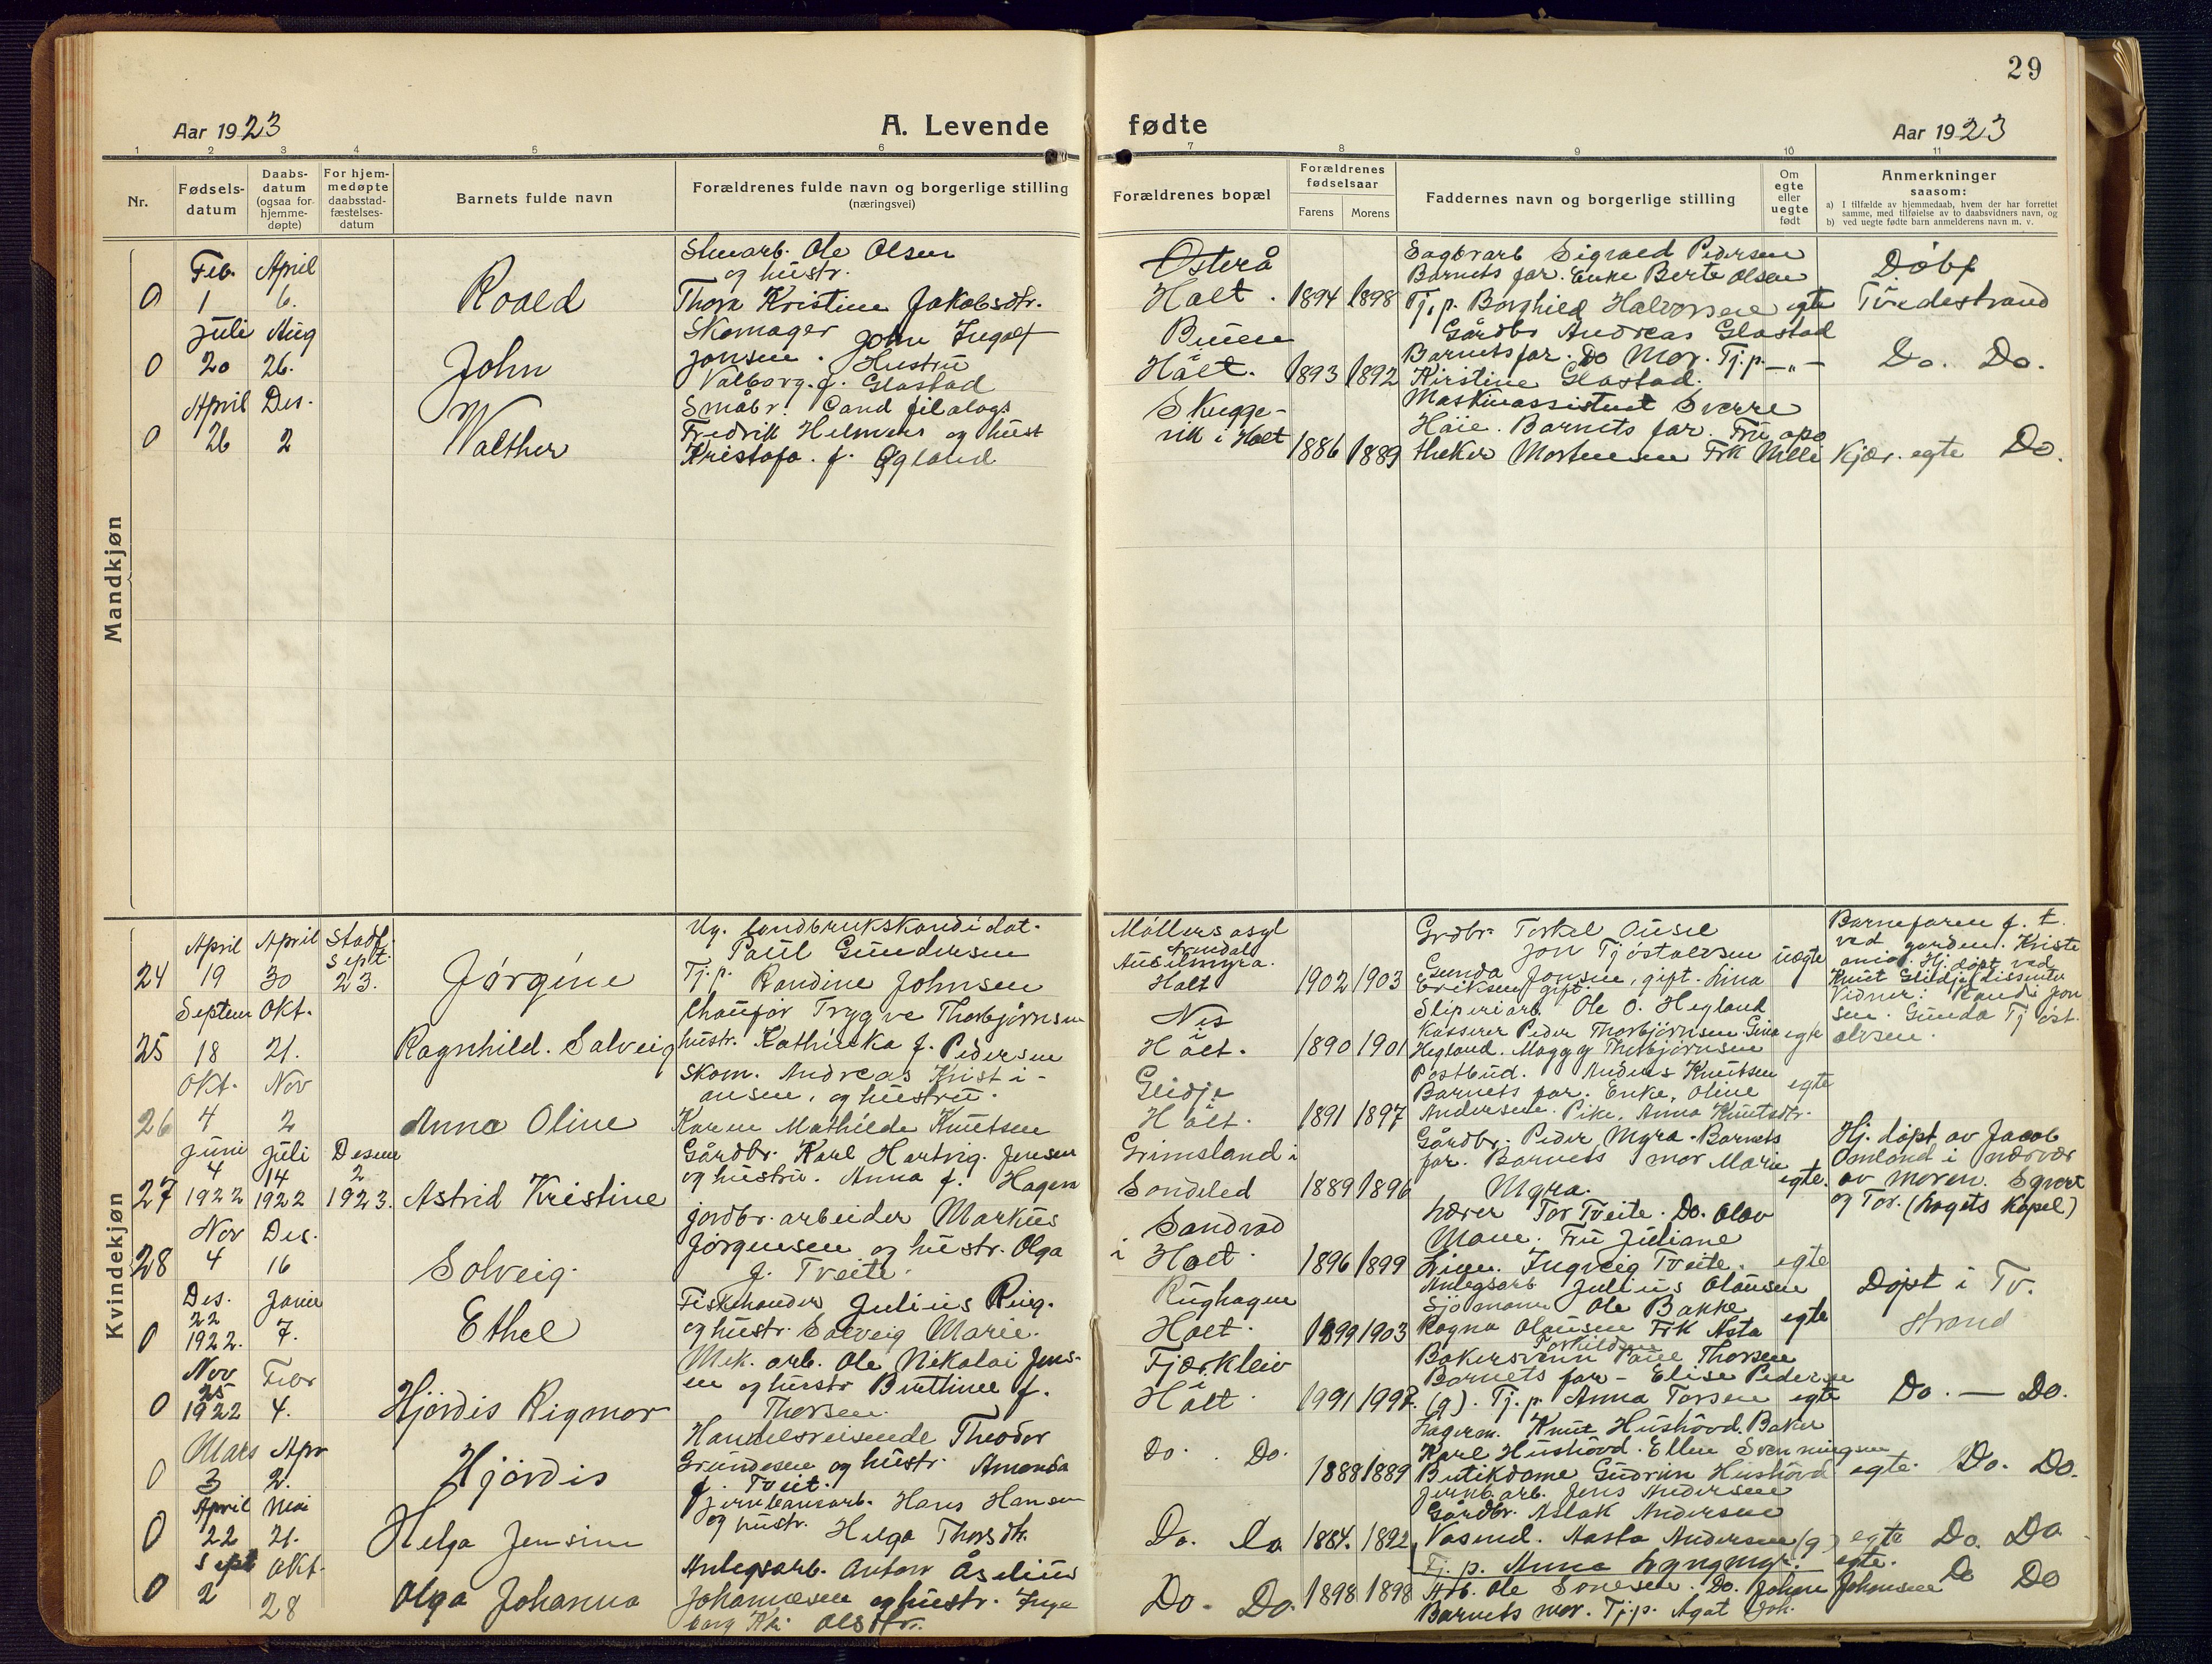 29
Aar 1923
A. Levende fødte
Aar 1923
1 2 3 4 5 6 7 8 9 10 11
Nr.
Fødsels-
datum
Daabs-
datum
(ogsaa for
hjemme-
døpte)
For hjem-
medøpte
daabsstad-
fæstelses-
datum
Barnets fulde navn
Forældrenes fulde navn og borgerlige stilling
(næringsvei)
Forældrenes bopæl
Forældrenes
fødselsaar
Farens Morens
Faddernes navn og borgerlige stilling
Om
egte
eller
uegte
født
Anmerkninger
saasom:
a) I tilfælde av hjemmedaab, hvem der har forrettet
samme, med tilføielse av to daabsvidners navn, og
b) ved uegte fødte barn anmelderens navn m. v.
Mandkjøn
0
Feb.
1
April
6.
Roald
Ole Olsen
og hustr.
Thora Kristine Jakobsdtr.
Østerå
Holt.
1894 1898
Sigvald Pedersen
Barnets far. Enke Berte Olsen
Tj. p. Borghild Halvorsen
egte
Døbt
Tvedestrand
0
Juli
20
Aug
26.
John
Skomager John Ingolf
Jonsen. Hustru
Valborg. f. Glastad
Holt.
1893 1892
Gårdbr Andreas Glastad
Barnets far. Do Mor. Tj. p.
Kirstine Glastad.
— „ —
Do. Do.
0
April
26
Des.
2
Walther
Småbr. Cand filologs
Fredrik Helmers og hust
Kristofa. f.
Skugge-
vik i Holt
1886 1889
Maskinassistent Sverre
Høie. Barnets far. Fru apo
theker Mortensen Frk Nilli Kjær.
egte
Do.
Kvindekjøn
24
April
19
April
30
Stadf.
Sept.
23.
Jørgine
Ug. landbrukskandidat.
Paul Gundersen
Tj. p. Randine Johnsen
Møllers asyl
Arendal
Holt
1902 1903
Grdbr. Torkel
Jon Tjøstolvsen
Gunda Jonsen, gift. Lina
Eriksen gift.
uegte
Barnefaren f. t.
ved garden. Kriste
Hj. døpt ved
Knut
Vidner: Randi Jon
sen. Gunda Tjøst.
olvsen.
25
Septem
18
Okt.
21.
Ragnhild. Solveig
Chaufør Trygve Thorbjørnsen
hustr. Kathinka f. Pedersen
Nes
i
Holt.
1890 1901
Sliperiarb. Ole O. Hegland
Kasserer Peder Thorbjørnsen Gina
Hegland. Maggy Thorbjørnsen
egte
26
Okt.
4
Nov
2
Anna Oline
Skom. Andreas Kristi-
ansen, og hustru.
Karen Mathilde Knutsen
Glidje
Holt.
1891 1897
Postbud. Anders Knutsen
Barnets far. Enke, Oline
Andersen. Pike, Anna Knutsdtr.
egte
27
Juni
4
1922
Juli
14
1922
Desem
2
1923.
Astrid Kristine
Gårdbr. Karl Hartvig. Jensen
og hustru. Anna f. Hagen
Grimsland i
Søndeled
1889 1896
Gårdbr. Peder Myra. Barnets
far. Barnets mor Marie
Myra.
egte.
Hj. døpt av Jacob
Omland i nærvær
av moren. Sigvert
og Tor. (Lagets Kapel)
28
Nov
4
Des.
16
Solveig.
Jordbr. arbeider Markus
Jørgensen og hustr. Olga
f. Tveite.
Sandvad
i Holt.
1896 1899
Lærer Tor Tveite. Do. Olav
Moen. Fru Juliane
Lien. Ingveig Tveite.
egte
0
Des.
22
1922.
Janu
7.
Ethel
Fiskehandler Julius Ring.
og hustr. Solveig Marie.
Rughagen
Holt.
1899 1903
Anlegsarb Julius Olausen
Sjømann Ole Bakke
Ragna Olausen Frk Asta
Torkildsen
egte
Døpt i Tv.
strand
0
Nov
25
1922
Febr
4.
Hjördis Rigmor
Mek. arb. Ole Nikolai Jens-
en og hustr f.
Thorsen.
Fjærkleiv
i
Holt.
1991 1997.
Bakersvenn Paul Thorsen
Barnets far — Elise Pedersen
(g). Tj. p. Anna Torsen
egte
Do. — Do.
0
Mars
3
Apr
2.
Hjördis
Handelsreisende Theodor
Grundesen og hustr. Amanda
f. Tveit.
Do. Do.
1888 1889
Lagerm. Knut Hushovd. Baker
Karl Hushovd. Ellen Svenningsen
Butikdame Gudrun Hushovd
egte.
Do. Do.
0
April
22
Mai
21.
Helga Jensine
Jernbanearb. Hans Hansen
og hustr. Helga Thorsdtr.
Do. Do
1884. 1892
Jernb. arb. Jens Andersen
Gårdbr. Aslak Andersen
Aasta Andersen (g)
Tj. p. Anna Lyngmyr.
egte
Do. Do
0
Sept
2
Okt.
28
Olga Johanna
Anlegsarb. Anton Åselius
Johannesen og hustr. Inge
borg Olsdtr.
Do. Do.
1898 1898
Arb. Ole Do. Johan Johansen
Barnets mor. Tj. p. Agat Joh.
egte.
Do Do